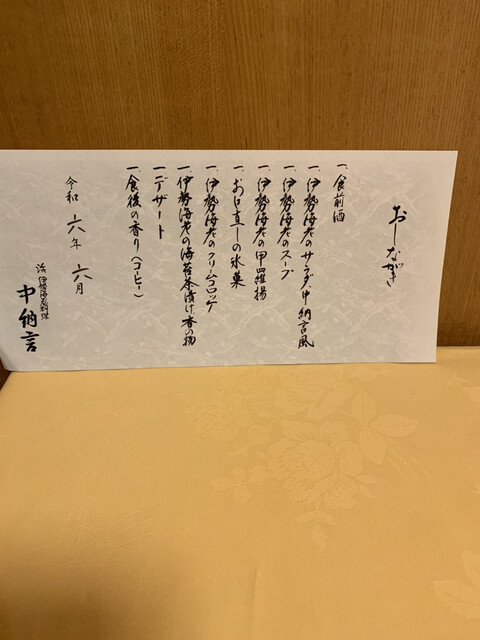 おしながき
一、食前酒
一、伊勢海老のサラダ、中納言風
一、伊勢海老のスープ
一、伊勢海老の甲羅揚
一、お口直しの氷菓
一、伊勢海老のクリームコロッケ
一、伊勢海老の海苔茶漬け、香の物
一、デザート
一、食後の香り(コーヒー)
令和 六年 六月
活伊勢海老料理
中納言